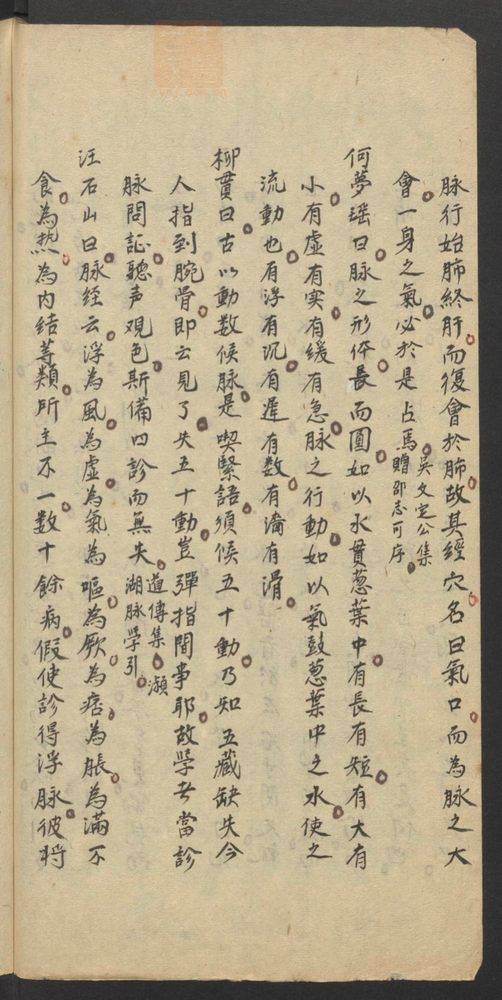 脉行始肺終肝而復會於肺故其經穴名曰氣口而為脉之大
會一身之氣必於是占焉吳文定公集贈邵志可序
何夢瑶曰脉之形体長而圓如以水貫葱葉中有長有短有大有
小有虛有实有緩有急脉之行動如以氣鼓葱葉中之水使之
流動也有浮有沉有遲有数有濇有滑
柳貫曰古以動数候脉是喫緊語須候五十動乃知五藏缺失今
人指到腕骨即云見了夫五十動豈彈指間事耶故学者當診
脉問証聽声观色斯備四診而無失道傳集瀕湖脉学引
汪石山曰脉經云浮為風為虛為氣為嘔為厥為痞為脹為滿不
食為热為内结等類所主不一数十餘病假使診得浮脉彼将